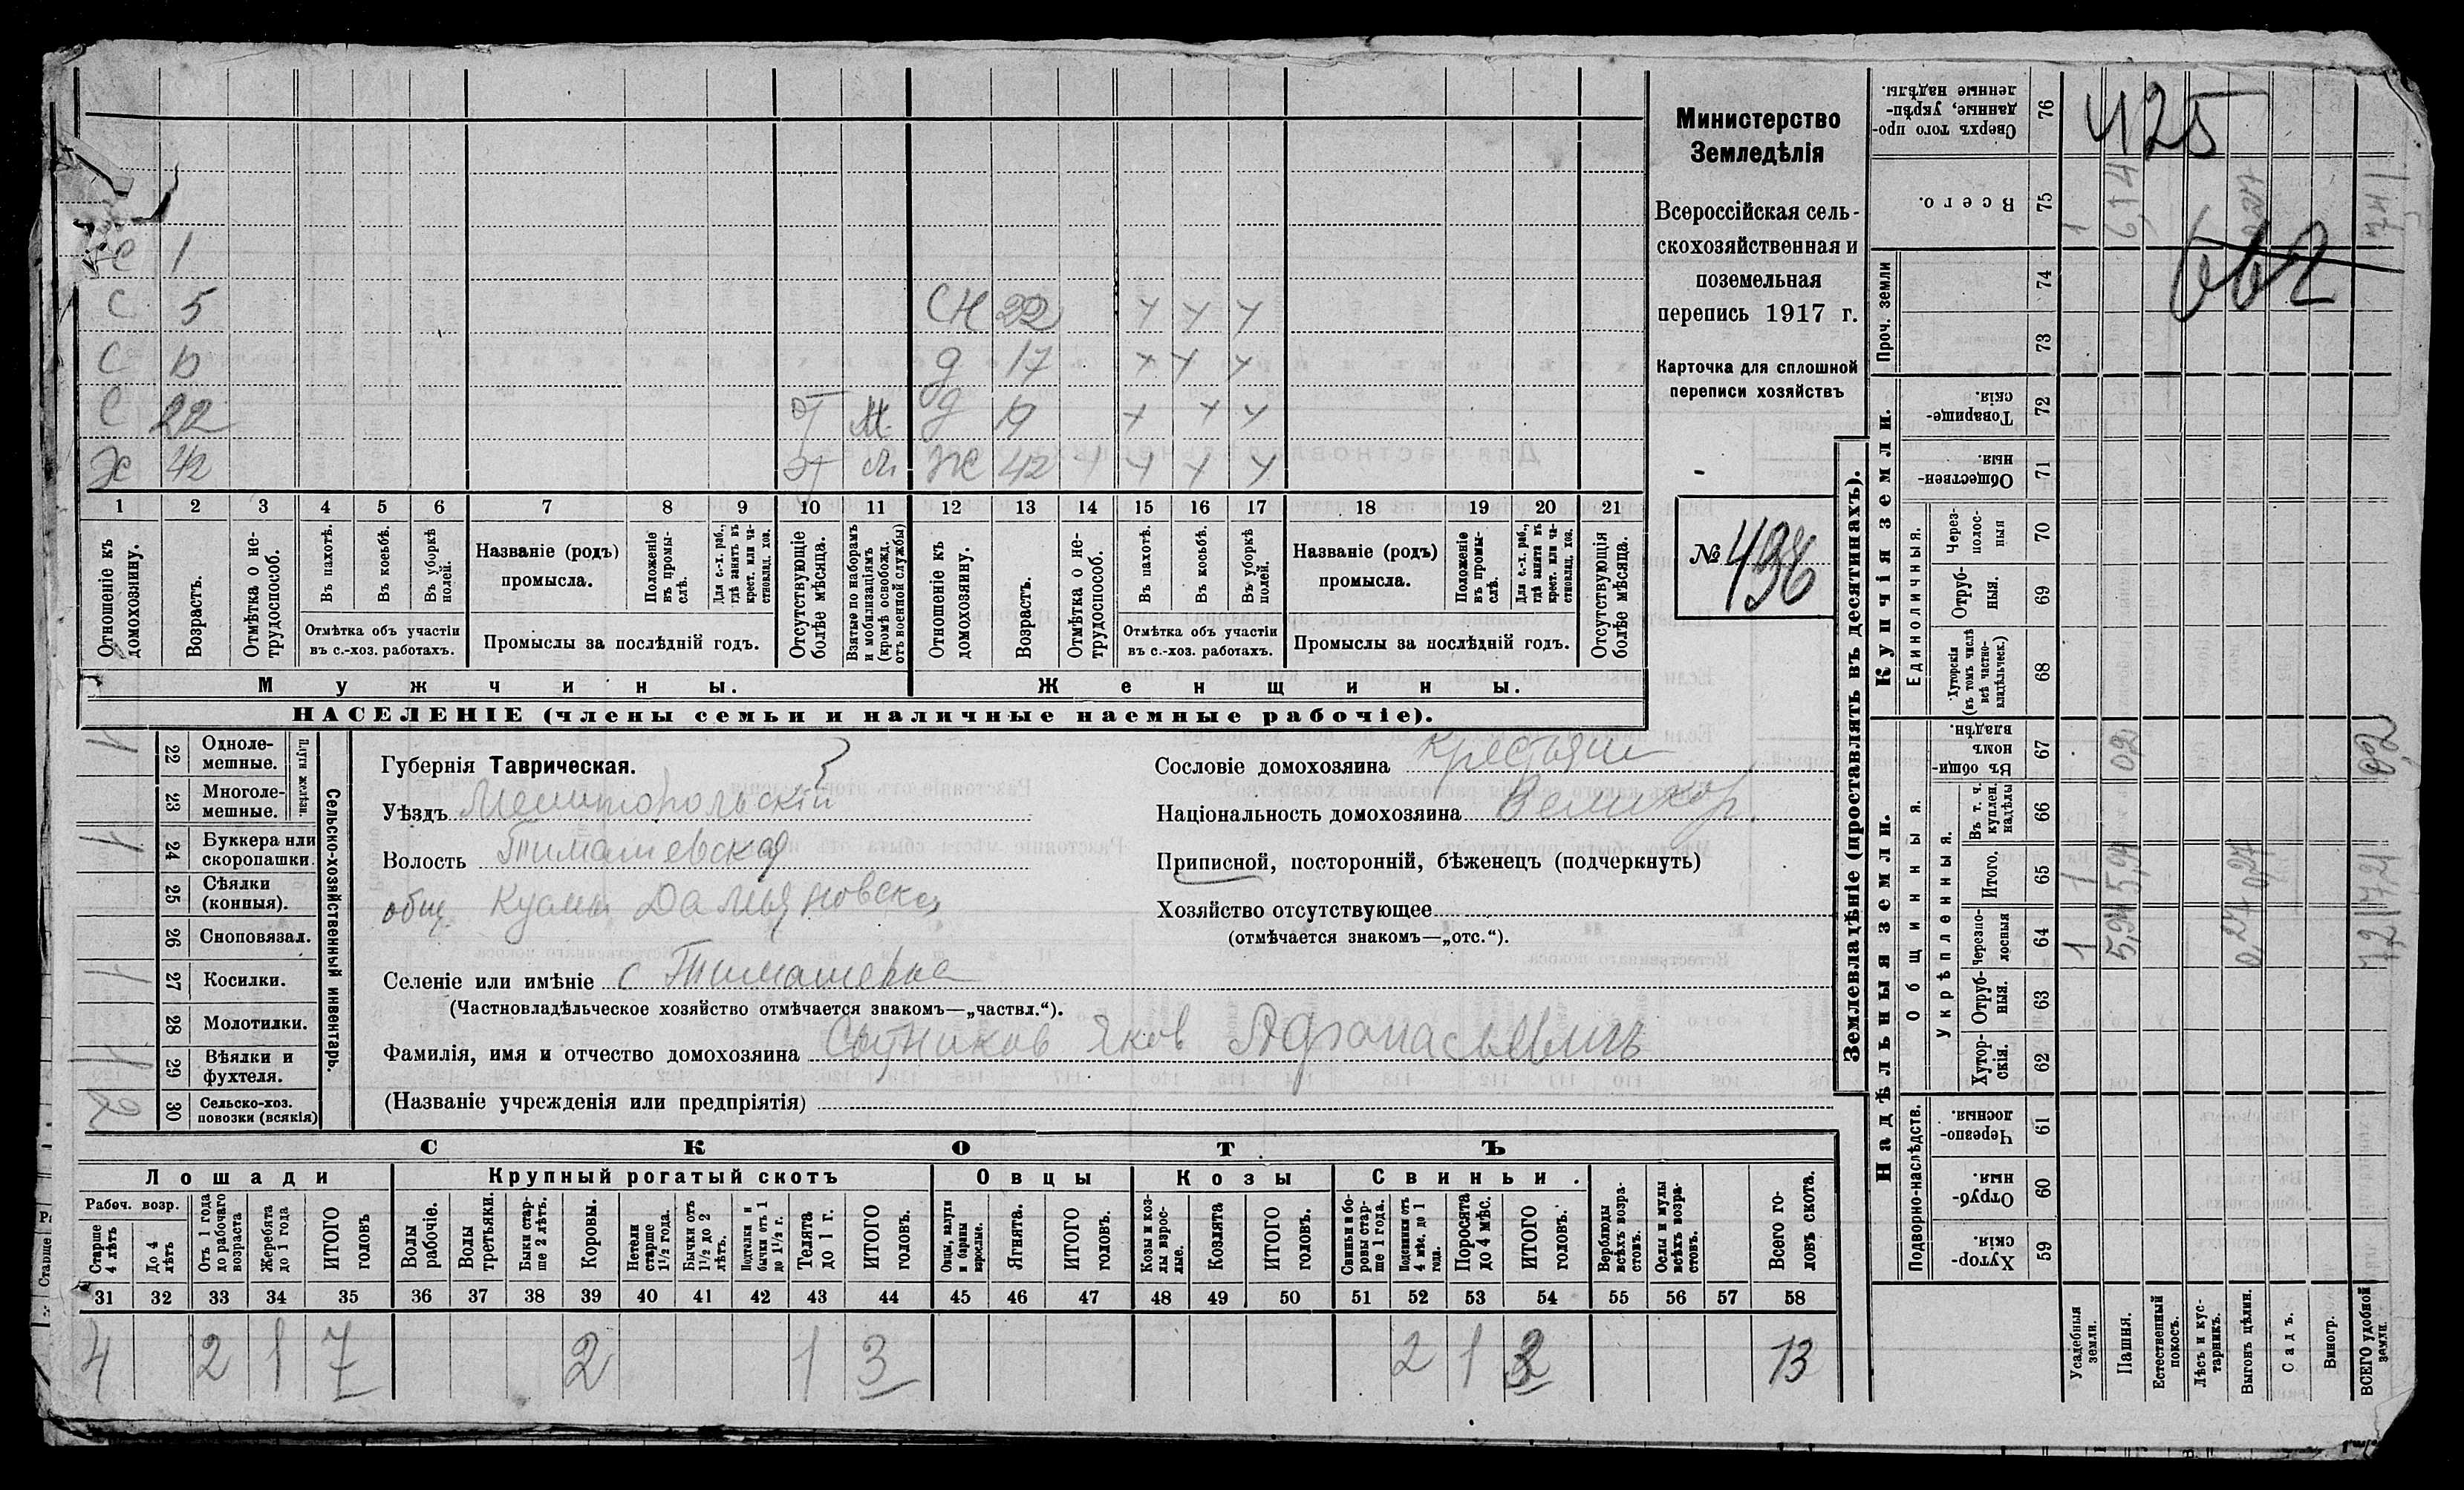 Министерство
Земледѣлія
Всероссійская сель-
скохозяйственная и
поземельная
перепись 1917 г.
Карточка для сплошной
переписи хозяйствъ
№ 436
425
662
С 1
С 5 СН 22 + + +
С 10 д 17 + + +
С 22 От М. д 19 + + +
Х 42 От М Ж 42 1 + + +
1 2 3 4 5 6 7 8 9 10 11 12 13 14 15 16 17 18 19 20 21
Отношеніе къ домохозяину.
Возрастъ.
Отмѣтка о не-трудоспособ.
Въ пахотѣ.
Въ косьбѣ.
Въ уборкѣ полей.
Отмѣтка объ участіи въ с.-хоз. работахъ.
Названіе (родъ) промысла.
Положеніе въ промы-слѣ.
Для с.-х. раб., гдѣ занятъ въ крест. или ча-стновлад. хоз.
Промыслы за послѣдній годъ.
Отсутствующіе болѣе мѣсяца.
Взятые по наборамъ и мобилизаціямъ (кромѣ освобожд. отъ военной службы)
Отношеніе къ домохозяину.
Возрастъ.
Отмѣтка о не-трудоспособ.
Въ пахотѣ.
Въ косьбѣ.
Въ уборкѣ полей.
Отмѣтка объ участіи въ с.-хоз. работахъ.
Названіе (родъ) промысла.
Положеніе въ промы-слѣ.
Для с.-х. раб., гдѣ занята въ крест. или ча-стновлад. хоз.
Промыслы за послѣдній годъ.
Отсутствующія болѣе мѣсяца.
Мужчины. Женщины.
НАСЕЛЕНІЕ (члены семьи и наличные наемные рабочіе).
Сельско-хозяйственный инвентарь.
Плуги желѣзн.
1 22 Одноле-мешные.
23 Многоле-мешные.
1 24 Буккера или скоропашки.
25 Сѣялки (конныя).
26 Сноповязал.
1 27 Косилки.
28 Молотилки.
1 29 Вѣялки и фухтеля.
2 30 Сельско-хоз. повозки (всякія)
Губернія Таврическая.
Уѣздъ Мелитопольскій
Волость Тимашевская
общ.
Селеніе или имѣніе с Тимашевка
(Частновладѣльческое хозяйство отмѣчается знакомъ—„частвл.“).
Фамилія, имя и отчество домохозяина Сотников Яков Афонасьевичъ
(Названіе учрежденія или предпріятія)
Сословіе домохозяина крестьян
Національность домохозяина Великор.
Приписной, посторонній, бѣженецъ (подчеркнуть)
Хозяйство отсутствующее
(отмѣчается знакомъ—„отс.“).
СКОТЪ
Лошади Крупный рогатый скотъ Овцы Козы Свиньи.
Рабоч. возр.
Старше 4 лѣтъ
До 4 лѣтъ
Отъ 1 года до рабочаго возраста
Жеребята до 1 года
ИТОГО головъ
Волы рабочіе.
Волы третьяки.
Быки стар-ше 2 лѣтъ.
Коровы.
Нетели старше 1½ года.
Бычки отъ 1½ до 2 лѣтъ.
Подтелки и бычки отъ 1 до 1½ г.
Телята до 1 г.
ИТОГО головъ.
Овцы, валухи и бараны взрослые.
Ягнята.
ИТОГО головъ.
Козы и коз-лы взрос-лые.
Козлята
ИТОГО головъ.
Свиньи и бо-ровы стар-ше 1 года.
Подсвинки отъ 4 мѣс. до 1 года.
Поросята до 4 мѣс.
ИТОГО головъ.
Верблюды всѣхъ возра-стовъ.
Ослы и мулы всѣхъ возра-стовъ.
Всего го-ловъ скота.
31 32 33 34 35 36 37 38 39 40 41 42 43 44 45 46 47 48 49 50 51 52 53 54 55 56 57 58
4 2 1 7 2 1 3 2 1 3 13
Землевладѣніе (проставлять въ десятинахъ).
Надѣльныя земли. Купчія земли.
Подворно-наслѣдств.
Общинныя.
Укрѣпленныя.
Единоличныя.
Проч. земли
59 Хутор-скія
60 Отруб-ныя.
61 Черезпо-лосныя.
62 Хутор-скія.
63 Отруб-ныя.
64 Черезпо-лосныя
65 Итого.
66 Въ т. ч. куплен. надѣлы
67 Въ общи-номъ владѣн.
68 Хуторскія (въ томъ числѣ всѣ частно-владѣльческ.)
69 Отруб-ныя.
70 Через-полос-ныя
71 Обществен-ныя.
72 Товарище-скія.
73
74
75 Всего.
76 Сверхъ того про-данные, укрѣп-ленные надѣлы.
Усадебныя земли. 1 1 1
Пашня. 5,94 5,94 0,2 6,14
Естественный покосъ.
Лѣсъ и кус-тарникъ.
Выгонъ цѣлин. 0,27 0,27 0,27
Садъ.
Виногр.
ВСЕГО удобной земли. 7,21 7,21 0,2 7,41